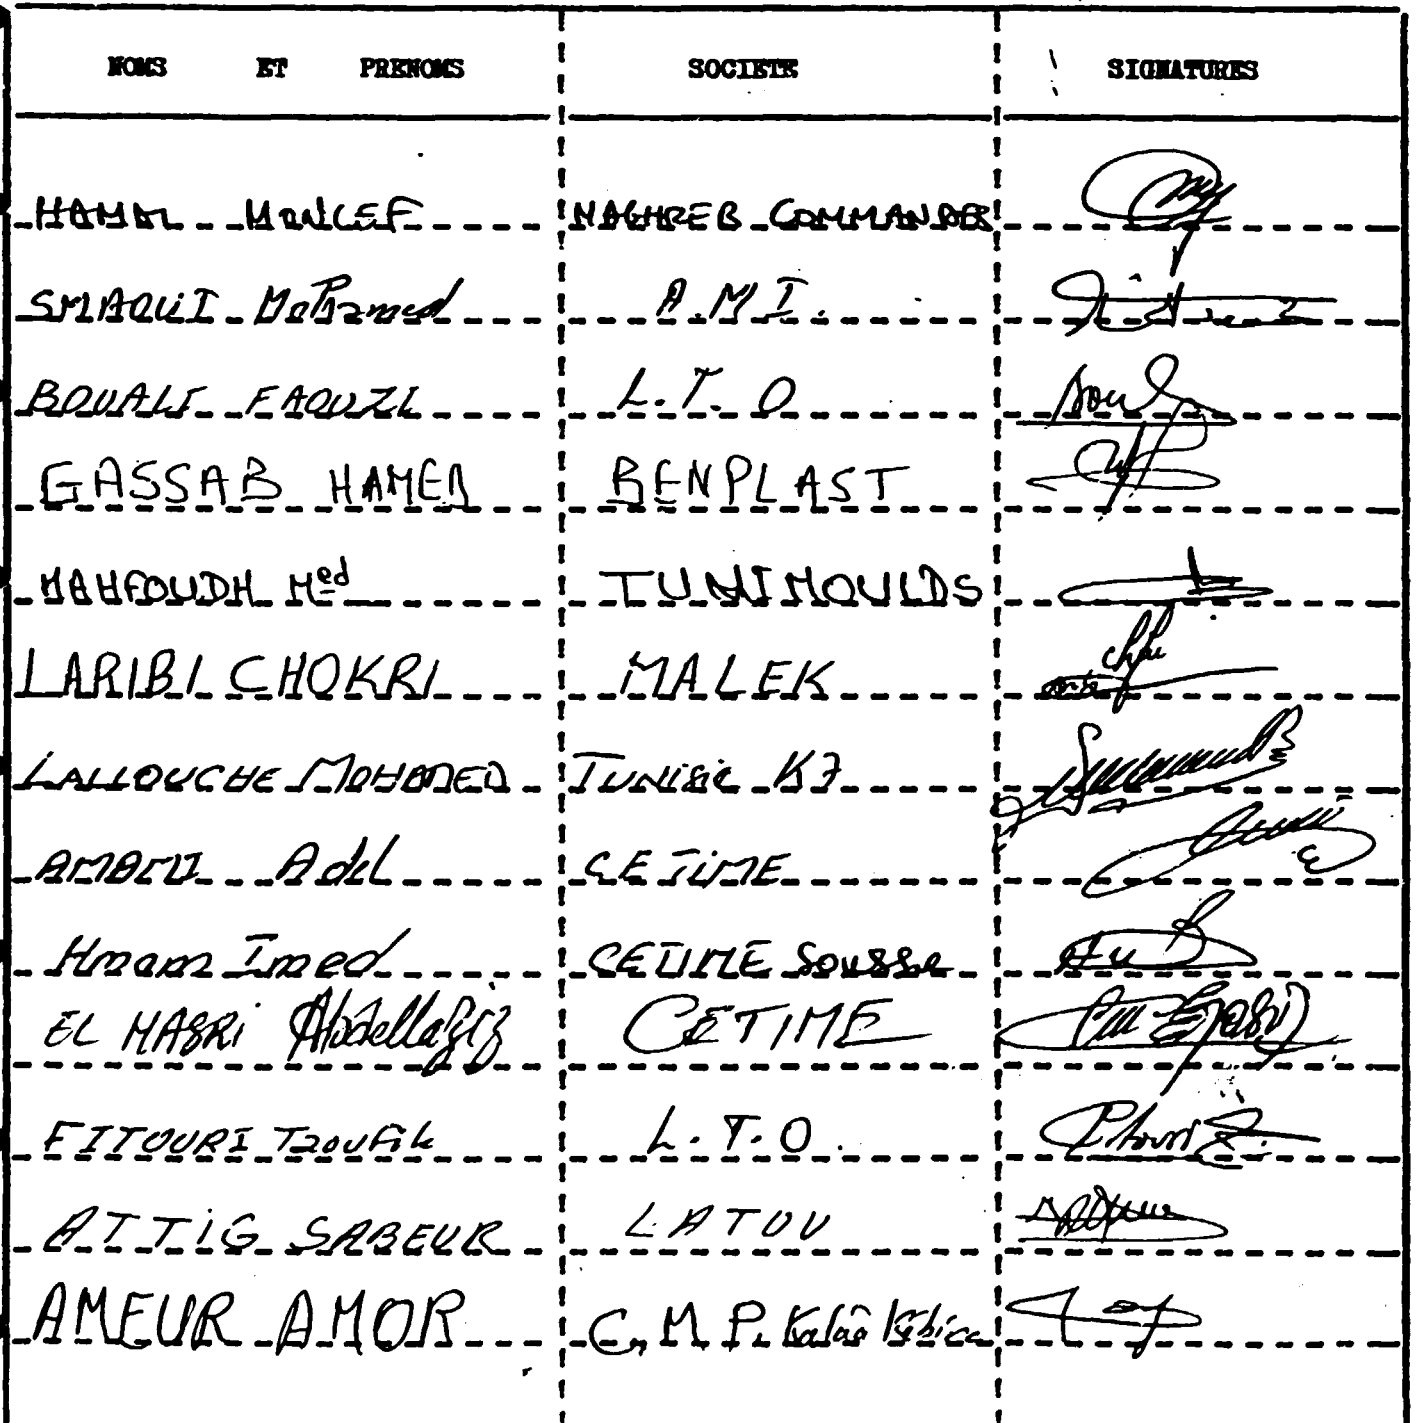 NOMS ET PRENOMS SOCIETE SIGNATURES
HAMAL MONCEF MAGHREB COMMANDES
SMAOUI Mohamed A.M.I.
BOUALI FAOUZI L.T.O
GASSAB HAMED BENPLAST
MAHFOUDH Med TUNIMOULDS
LARIBI CHOKRI MALEK
LALLOUCHE MOHAMED TUNISIE K7
AMAMI Adel CETIME
Hmam Imed CETIME Sousse
EL MASRI Abdellaziz CETIME
FITOURI Taoufik L.T.O.
ATTIG SABEUR LATOU
AMEUR AMOR C.M.P. Kalaa Kebira